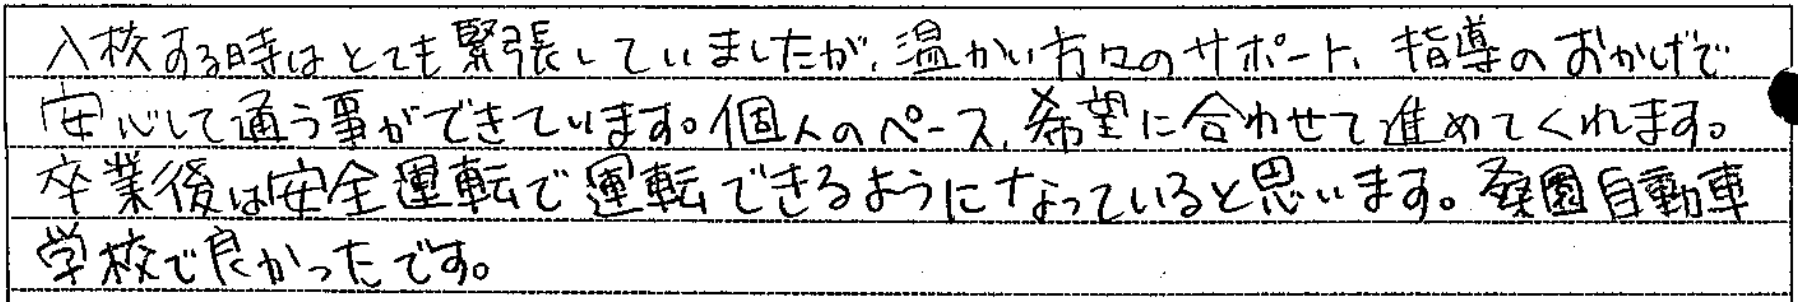 入校する時はとても緊張していましたが、温かい方々のサポート、指導のおかげで
安心して通う事ができています。個人のペース、希望に合わせて進めてくれます。
卒業後は安全運転で運転できるようになっていると思います。桑園自動車
学校で良かったです。